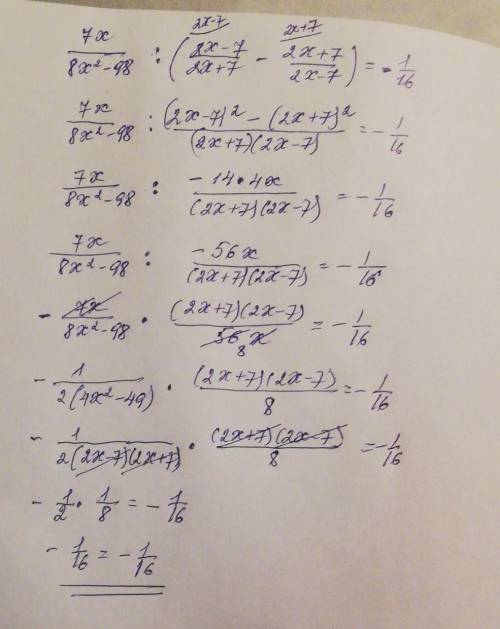 2x-7 2x+7
7x/(8x²-98) : (2x-7/2x+7 - 2x+7/2x-7) = -1/16
7x/(8x²-98) : ((2x-7)² - (2x+7)²)/((2x+7)(2x-7)) = -1/16
7x/(8x²-98) : (-14·4x)/((2x+7)(2x-7)) = -1/16
7x/(8x²-98) : (-56x)/((2x+7)(2x-7)) = -1/16
- 7x/(8x²-98) · ((2x+7)(2x-7))/(56x) = -1/16
8
- 1/(2(4x²-49)) · ((2x+7)(2x-7))/8 = -1/16
- 1/(2(2x-7)(2x+7)) · ((2x+7)(2x-7))/8 = -1/16
- 1/2 · 1/8 = -1/16
- 1/16 = -1/16